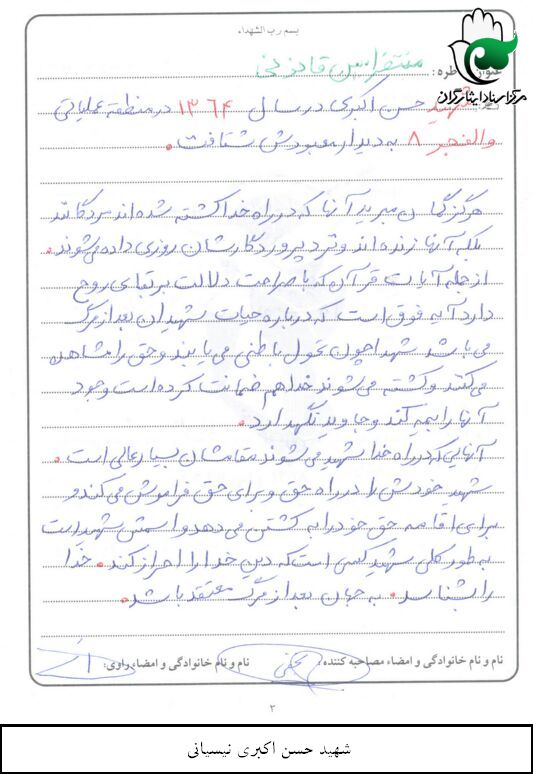 بسم رب الشهداء
عنوان خاطره:
مرکز اسناد ایثارگران
شهید حسن اکبری در سال ۱۳۶۴ در منطقه عملیاتی
والفجر ۸ به دیدار معبودش شتافت.
هرگز گمان مبرید آنها که در راه خدا کشته شده اند مردگانند
بلکه آنها زنده اند و نزد پروردگارشان روزی داده می شوند.
از جمله آیات قرآن که با صراحت دلالت بر بقای روح
دارد آیه فوق است که درباره حیات شهیدان بعد از مرگ
می باشد شهدا چون تحول باطنی می یابند و حق را مشاهده
می کنند و کشته می شوند خدا هم ضمانت کرده است وجود
آنها را بیمه کند و جاوید نگهدارد.
آنهایی که در راه خدا شهید می شوند مقامشان بسیار عالی است.
شهید خودش را در راه حق و برای حق فراموش می کند و
برای اقامه حق خود را به کشتن می دهد و اسمش شهید است
به طور کلی شهید کسی است که دین خدا را احراز کند. خدا
را بشناسد. به جهان بعد از مرگ معتقد باشد.
نام و نام خانوادگی و امضاء مصاحبه کننده: نام و نام خانوادگی و امضاء راوی:
۳
شهید حسن اکبری نیسیانی